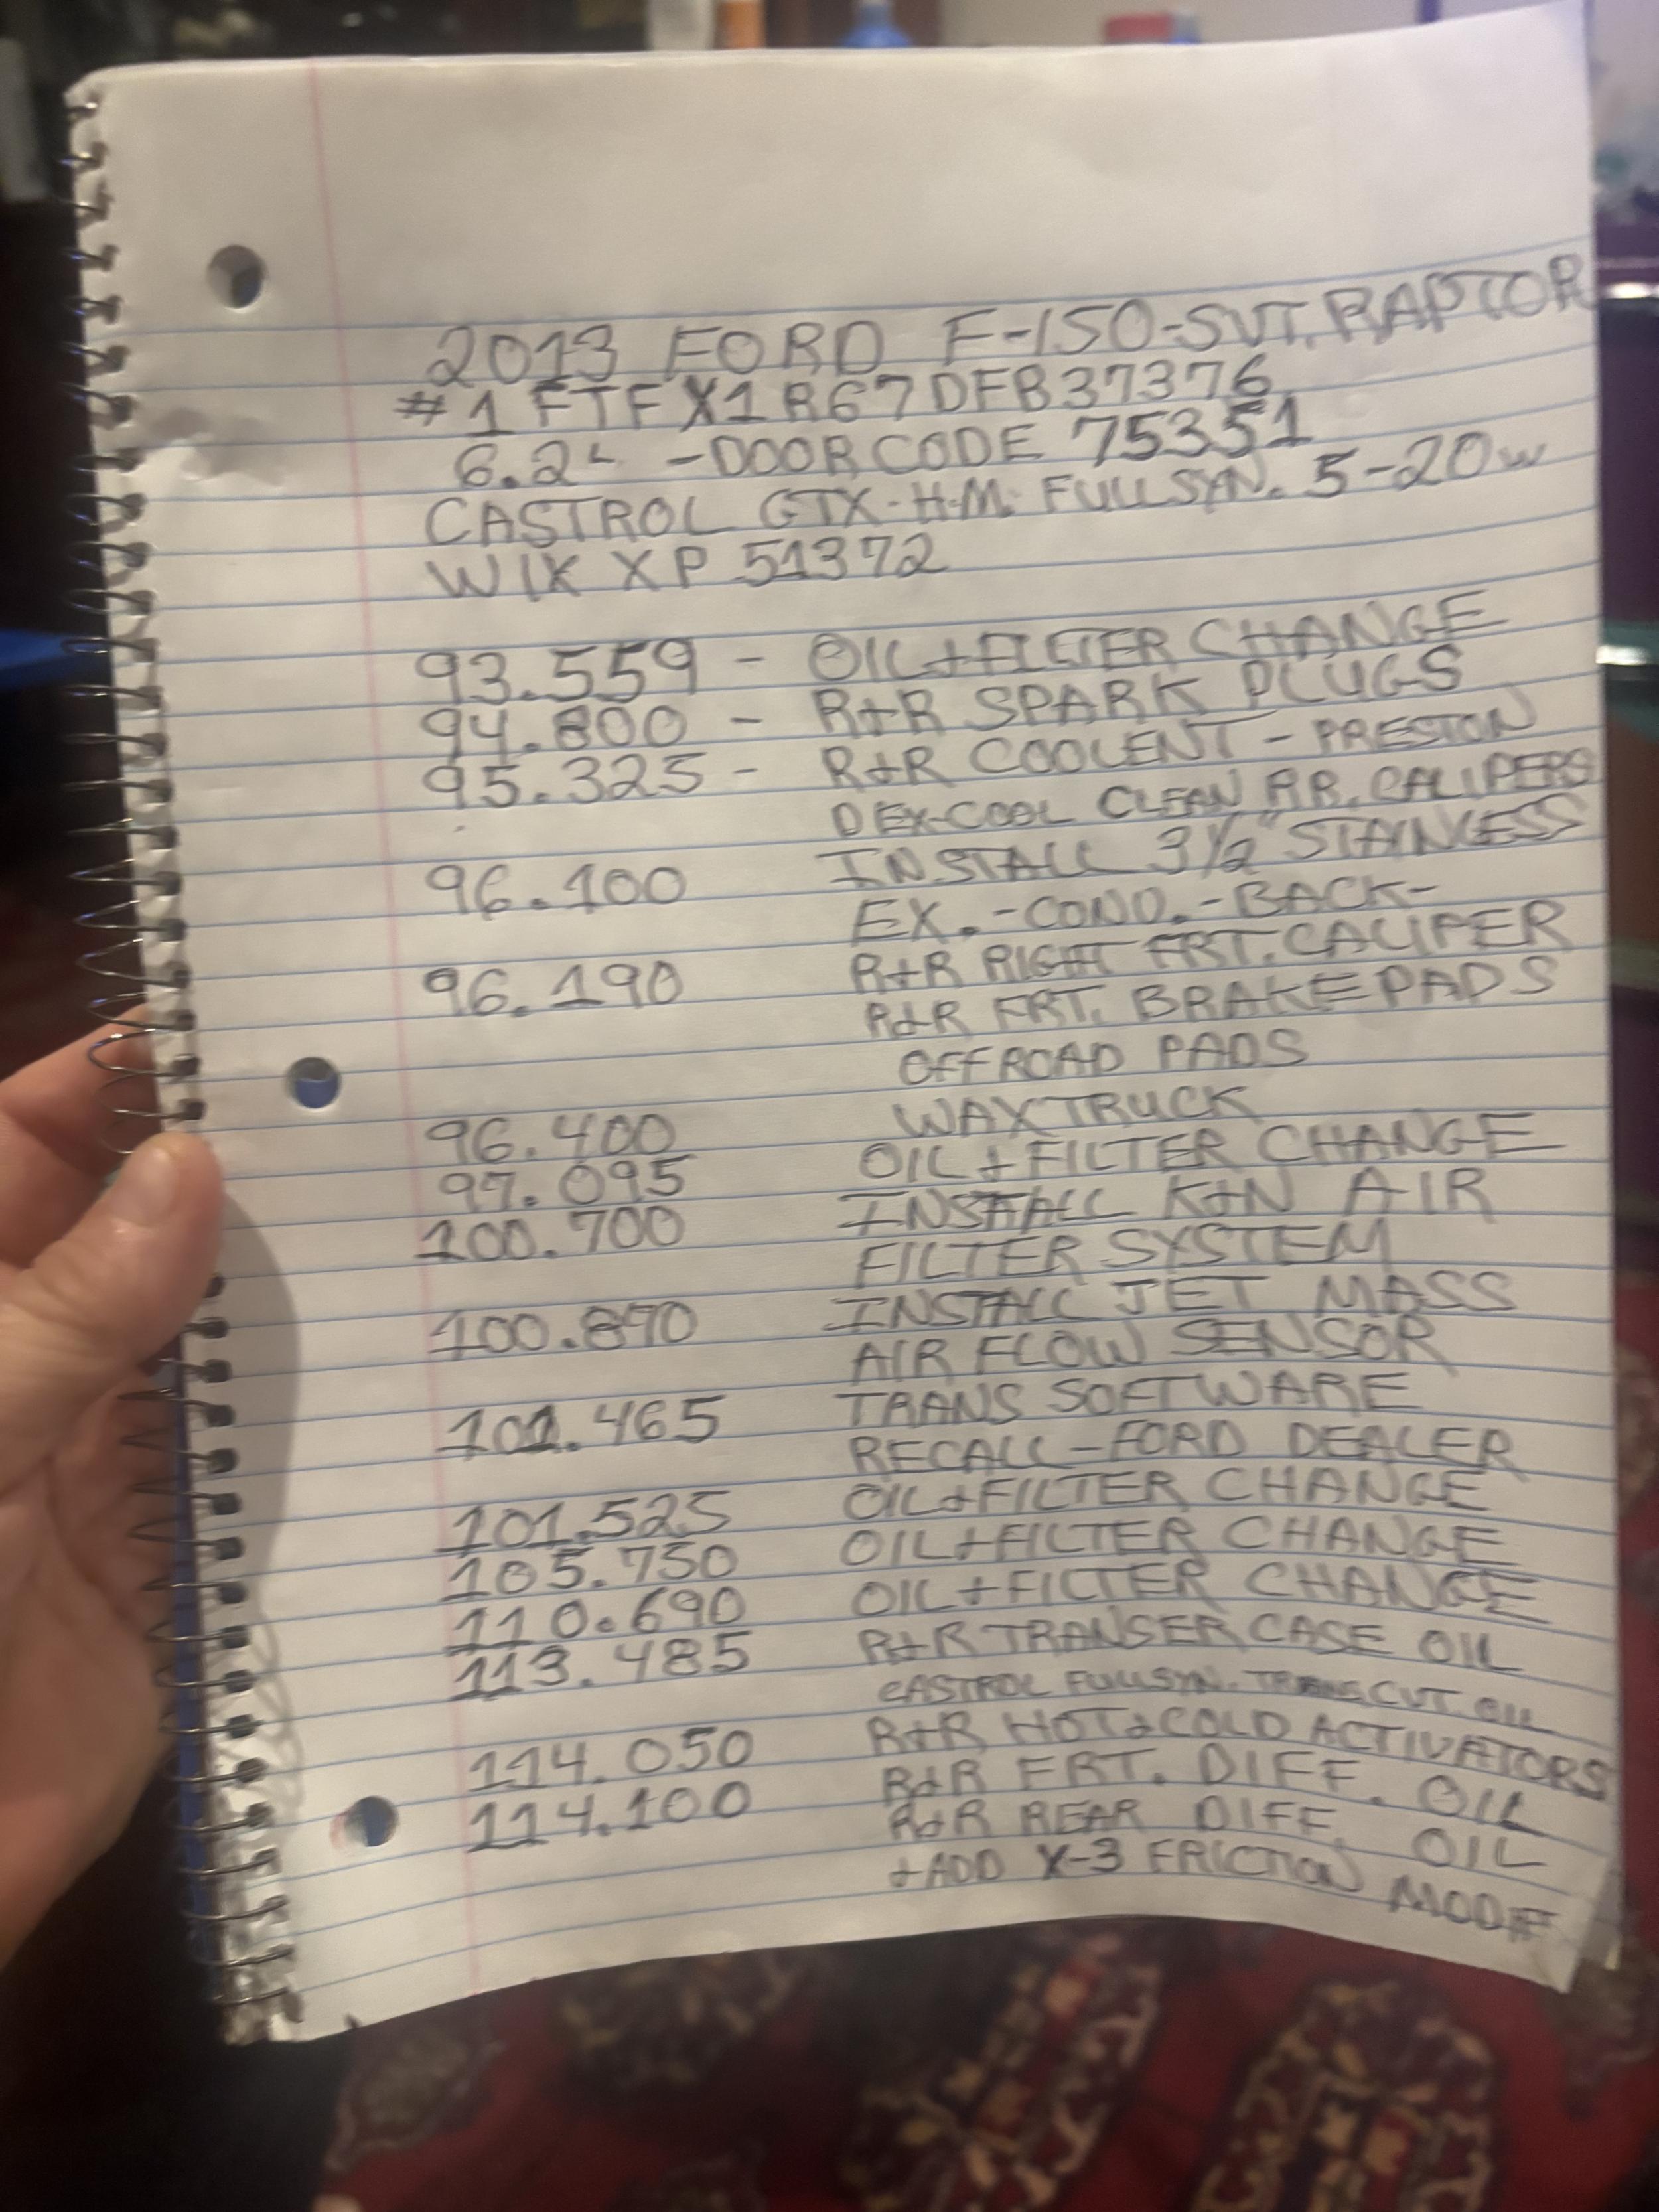 2013 FORD F-150-SVT. RAPTOR
#1FTFX1R67DFB37376
6.2L -DOOR CODE 75351
CASTROL GTX-H.M. FULL SYN. 5-20W
WIX XP 51372
93.559 - OIL+FILTER CHANGE
94.800 - R+R SPARK PLUGS
95.325 - R+R COOLENT - PRESTON
DEX-COOL CLEAN RR. CALIPERS
96.100 INSTALL 3 1/2" STAINLESS
EX. -COND.-BACK-
96.190 R+R RIGHT FRT. CALIPER
R+R FRT. BRAKE PADS
OFF ROAD PADS
96.400 WAX TRUCK
97.095 OIL + FILTER CHANGE
100.700 INSTALL K+N AIR
FILTER SYSTEM
100.890 INSTALL JET MASS
AIR FLOW SENSOR
101.465 TRANS SOFTWARE
RECALL-FORD DEALER
101.525 OIL+FILTER CHANGE
105.750 OIL+FILTER CHANGE
110.690 OIL+FILTER CHANGE
113.485 R+R TRANSER CASE OIL
CASTROL FULL SYN. TRANS CVT. OIL
114.050 R+R HOT+COLD ACTIVATORS
114.100 R+R FRT. DIFF. OIL
R+R REAR DIFF. OIL
+ADD X-3 FRICTION MODIF